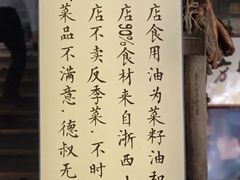 店食用油为菜籽油和
店90%食材来自浙西
店不卖反季菜·不时
菜品不满意·德叔无